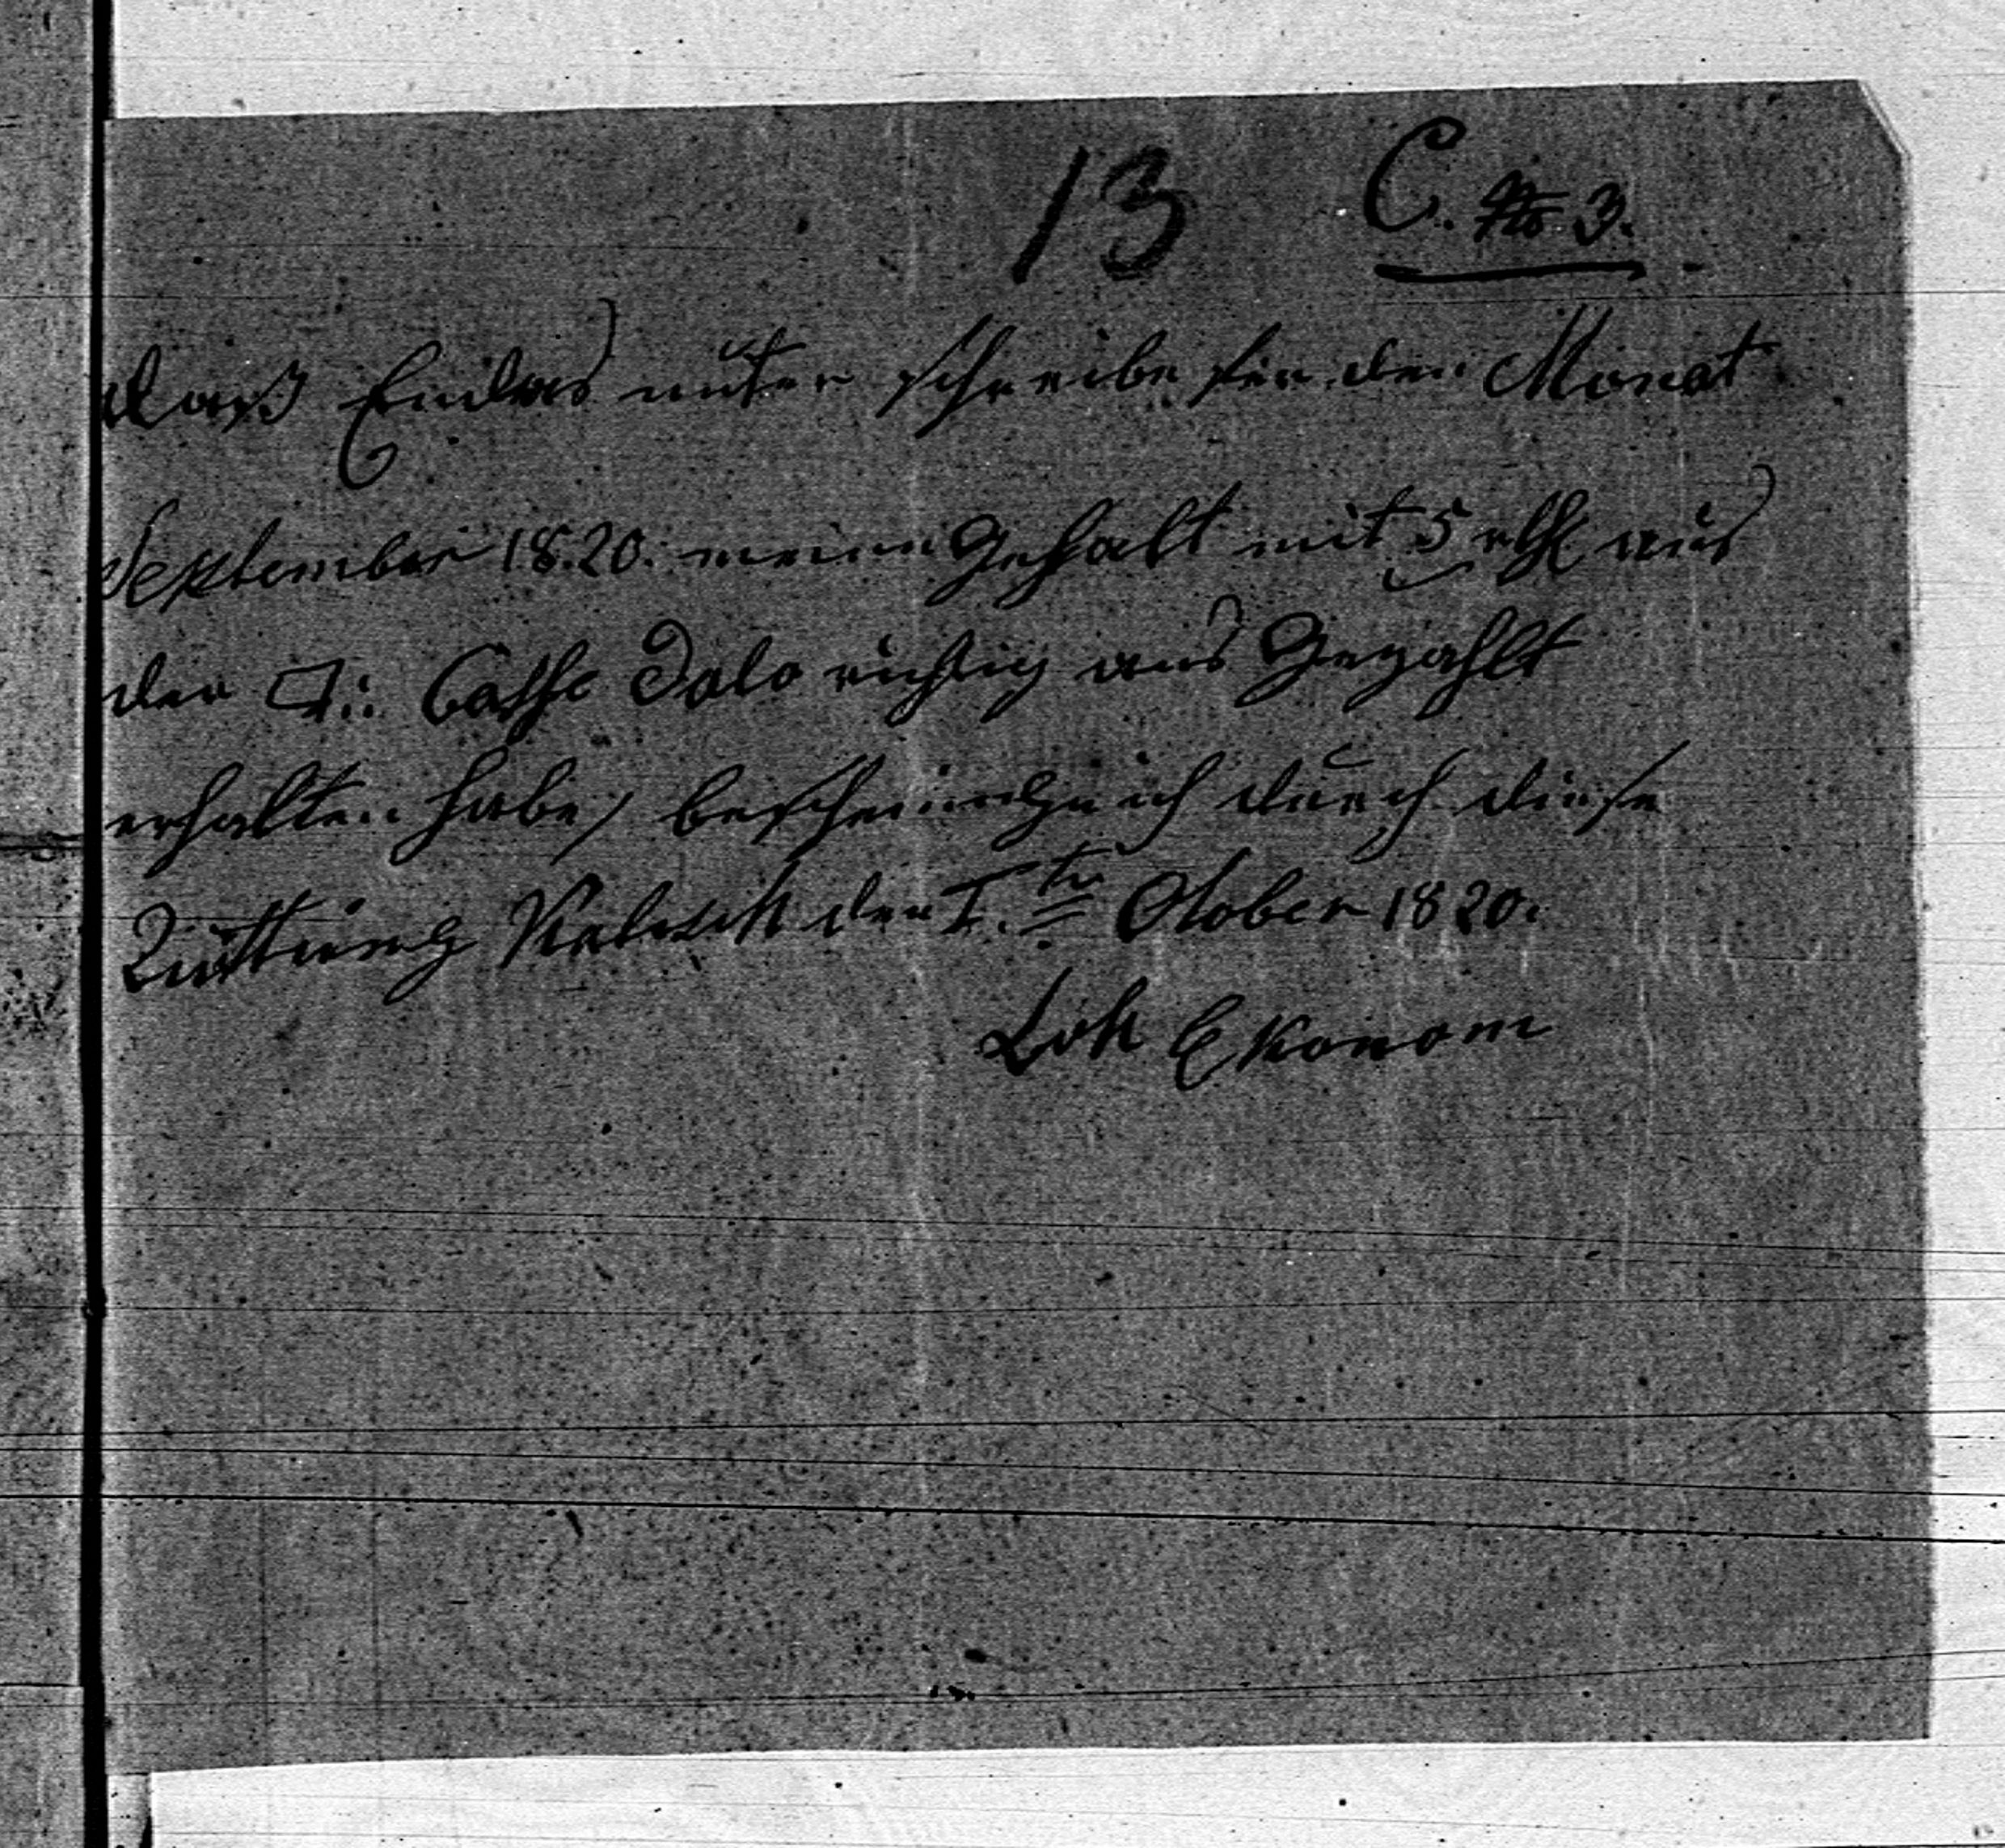 13 C. No 3.
daß Endes unter schreibe für den Monat
September 1820. meinen Gehalt mit 5 rthl aus
der Casse Dato richtig aus Gezahlt
erhalten habe, bescheinige ich durch diese
Quittung Kalisch den I.ten October 1820.
Loh Ekonom